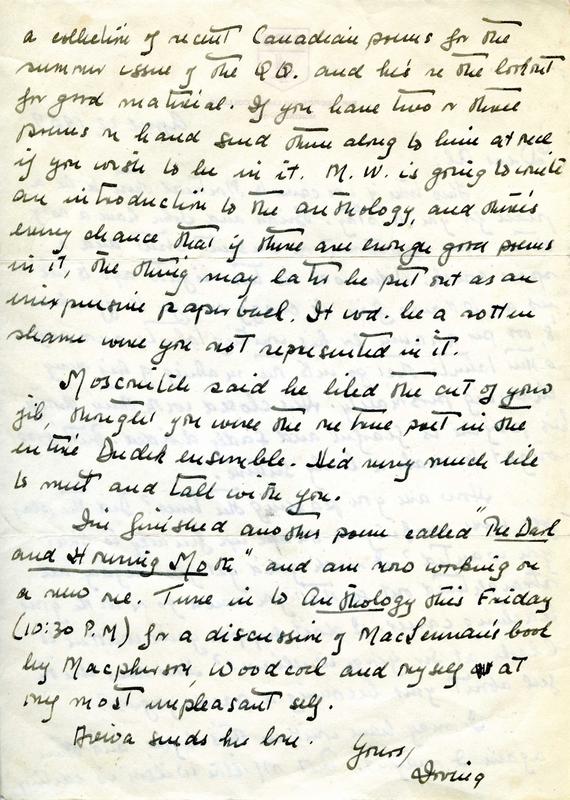 a collection of recent Canadian poems for the
summer issue of the Q.Q. and he's on the lookout
for good material. If you have two or three
poems on hand send them along to him at once
if you wish to be in it. M. W. is going to write
an introduction to the anthology, and there's
every chance that if there are enough good poems
in it, the thing may later be put out as an
inexpensive paperback. It wd. be a rotten
shame were you not represented in it.
Moscovitch said he liked the cut of your
jib, thought you were the one true poet in the
entire Dudek ensemble. He'd very much like
to meet and talk with you.
I've finished another poem called "The Dark
and Humming Moth" and am now working on
a new one. Tune in to Anthology this Friday
(10:30 P.M) for a discussion of MacLennan's book
by Macpherson, Woodcock and myself at
my most unpleasant self.
Aviva sends her love.
Yours,
Irving